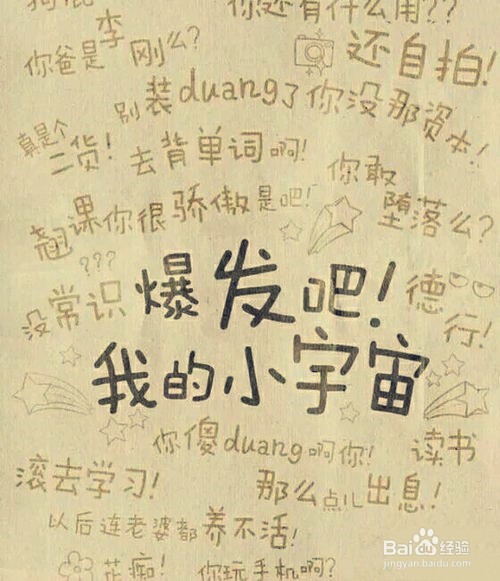 你还有什么用??
你爸是李刚么?
还自拍!
别装duang了你没那资本!
真是个二货!
去背单词啊!
你敢堕落么?
翘课你很骄傲是吧!
???
没常识
爆发吧!
德行!
我的小宇宙
你傻duang啊你!
读书
滚去学习!
那么点儿出息!
以后连老婆都养不活!
花痴!
你玩手机啊?
Baidu经验
jingyan.baidu.com